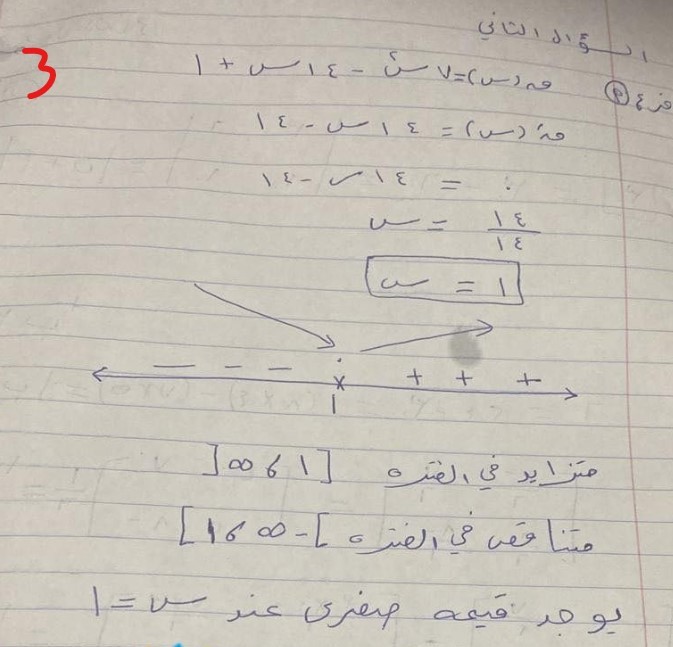 السؤال الثاني
فرع (P) ق(س) = ٧س٢ - ١٤س + ١
قَ(س) = ١٤س - ١٤
٠ = ١٤س - ١٤
١٤/١٤ = س
١ = س
3
- - - ٠ + + +
×
١
متزايد في الفتره [١ ، ∞[
متناقص في الفتره ]-∞ ، ١]
يوجد قيمه صغرى عند س = ١